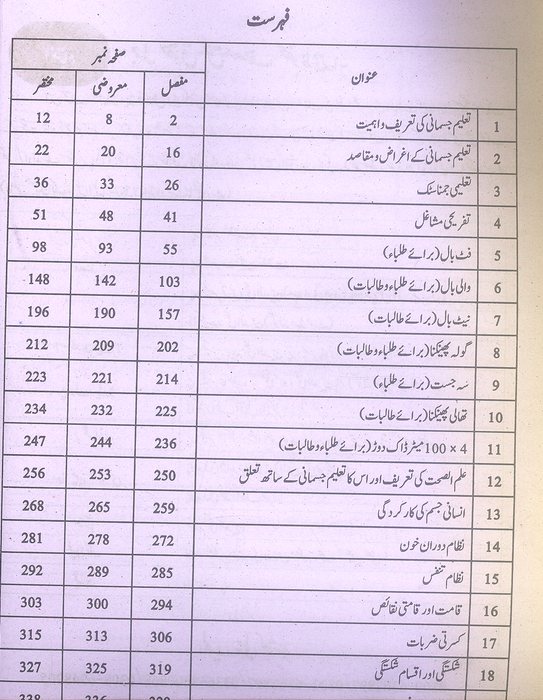 فہرست
عنوان صفحہ نمبر
مفصل معروضی مختصر
1 تعلیم جسمانی کی تعریف و اہمیت 2 8 12
2 تعلیم جسمانی کے اغراض و مقاصد 16 20 22
3 تعلیمی جمناسٹک 26 33 36
4 تفریحی مشاغل 41 48 51
5 فٹ بال (برائے طلباء) 55 93 98
6 والی بال (برائے طلباء و طالبات) 103 142 148
7 نیٹ بال (برائے طالبات) 157 190 196
8 گولہ پھینکنا (برائے طلباء و طالبات) 202 209 212
9 سہ جست (برائے طلباء) 214 221 223
10 تھالی پھینکنا (برائے طالبات) 225 232 234
11 4 × 100 میٹر ڈاک دوڑ (برائے طلباء و طالبات) 236 244 247
12 علم الصحت کی تعریف اور اس کا تعلیم جسمانی کے ساتھ تعلق 250 253 256
13 انسانی جسم کی کارکردگی 259 265 268
14 نظام دوران خون 272 278 281
15 نظام تنفس 285 289 292
16 قامت اور قامتی نقائص 294 300 303
17 کسرتی ضربات 306 313 315
18 شکستگی اور اقسام شکستگی 319 325 327